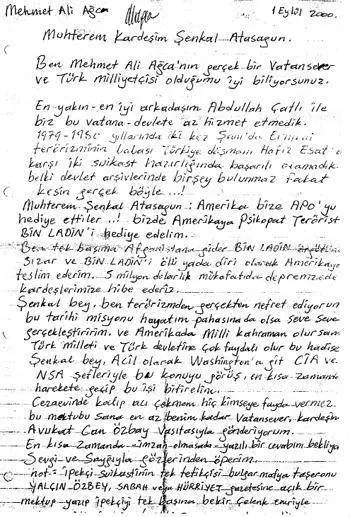 Mehmet Ali Ağca
1 Eylül 2000.
Muhterem Kardeşim Şenkal Atasagun.
Ben Mehmet Ali Ağca'nın gerçek bir Vatansever
ve Türk Milliyetçisi olduğumu iyi biliyorsunuz.
En yakın-en iyi arkadaşım Abdullah Çatlı ile
biz bu vatana-devlete az hizmet etmedik.
1979-1980 yıllarında iki kez Şam'da Ermeni
terörizminin babası Türkiye düşmanı Hafız Esat'a
karşı iki suikast hazırlığında başarılı olamadık
belki devlet arşivlerinde birşey bulunmaz fakat
kesin gerçek böyle...!
Muhterem Şenkal Atasagun: Amerika bize APO'yu
hediye ettiler...! bizde Amerikaya Psikopat Terörist
BiN LADiN'i hediye edelim.
Ben tek başıma Afganistana gider BiN LADiN
Sızar ve BiN LADiN'i ölü yada diri olarak Amerikaya
teslim ederim. 5 milyon dolarlık mükafatıda depremzede
kardeşlerimize hibe ederiz.
Şenkal bey, ben terörizmden gerçekten nefret ediyorum
bu tarihi misyonu hayatım pahasınada olsa seve seve
gerçekleştiririm. ve Amerikada Milli kahraman olursam
Türk milleti ve Türk devletine çok faydalı olur bu hadise
Şenkal bey, Acil olarak Washington'a git CIA ve
NSA şefleriyle bu konuyu görüş, en kısa zamanda
harekete geçip bu işi bitirelim.
Cezaevinde kalıp acı çekmem hiç kimseye fayda vermez.
bu mektubu Sana en az benim kadar Vatansever, kardeşim
Avukat Can Özbay Vasıtasıyla gönderiyorum.
En kısa zamanda - imzan olmasada yazılı bir cevabını bekliyo
Sevgi ve Saygıyla gözlerinden öperim.
not = ipekçi suikastinin tek tetikçisi bulgar mafya taşeronu
YALÇIN ÖZBEY, SABAH ve HÜRRİYET gazetesine açık bir
mektup yazıp ipekçiyi tek başına bekir Çelenk emriyle